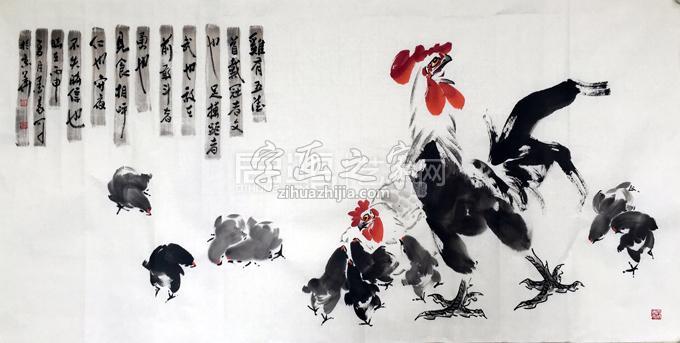 雞有五德
首戴冠者文
也足搏距者
武也敌在
前敢斗者
勇也
見食相呼
仁也守夜
不失時信也
丙申
夏月
於京華
字画之家网
zihuazhijia.com